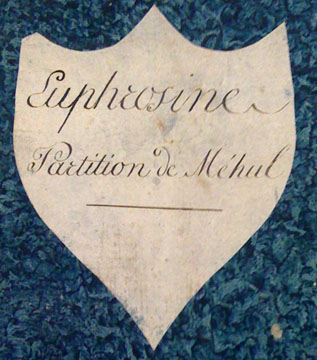 Euphrosine
Partition de Méhul